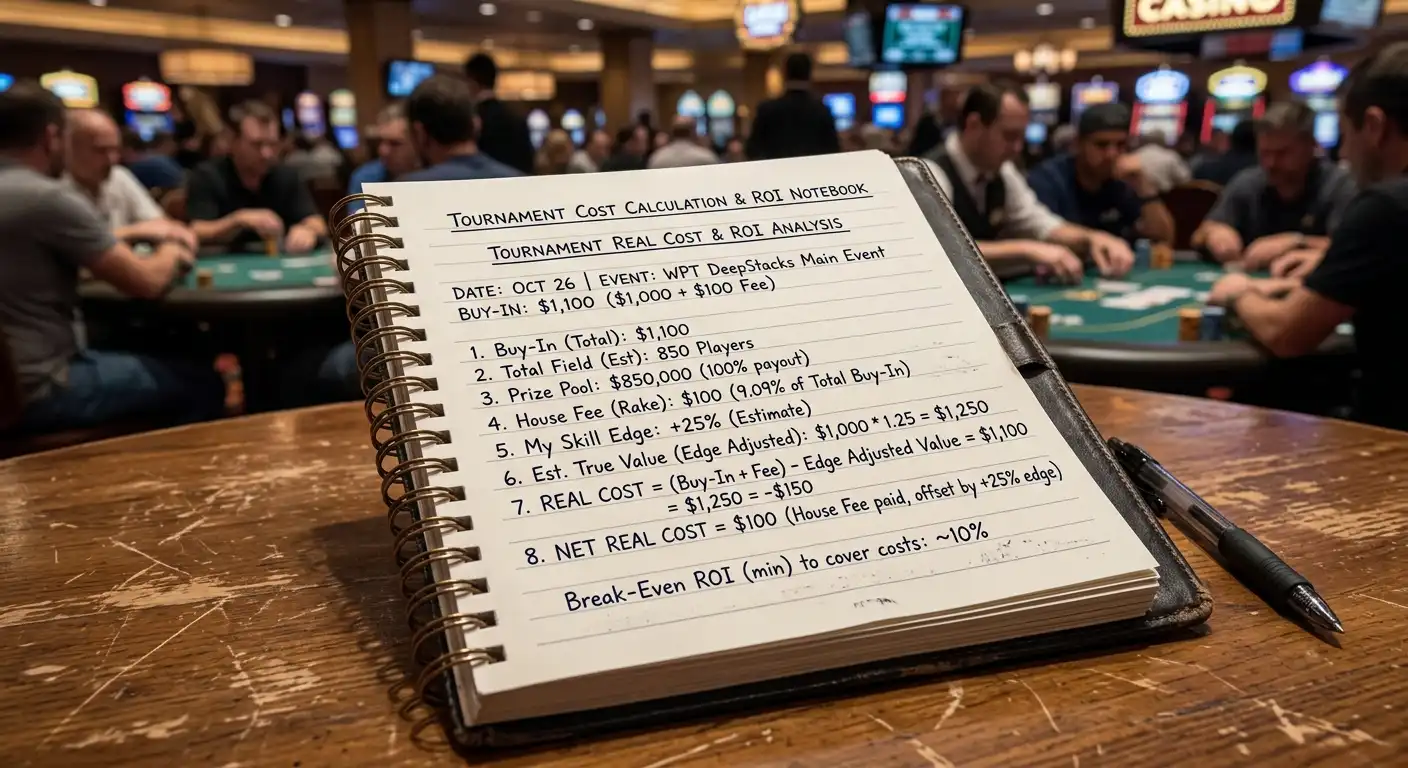 CASINO
TOURNAMENT COST CALCULATION & ROI NOTEBOOK
TOURNAMENT REAL COST & ROI ANALYSIS
DATE: OCT 26 | EVENT: WPT DEEPSTACKS MAIN EVENT
BUY-IN: $1,100 ($1,000 + $100 FEE)
1. Buy-In (Total): $1,100
2. Total Field (Est): 850 Players
3. Prize Pool: $850,000 (100% payout)
4. House Fee (Rake): $100 (9.09% of Total Buy-In)
5. My Skill Edge: +25% (Estimate)
6. Est. True Value (Edge Adjusted): $1,000 * 1.25 = $1,250
7. REAL COST = (Buy-In + Fee) - Edge Adjusted Value = $1,100
= $1,250 = -$150
8. NET REAL COST = $100 (House Fee paid, offset by +25% edge)
Break-Even ROI (min) to cover costs: ~10%